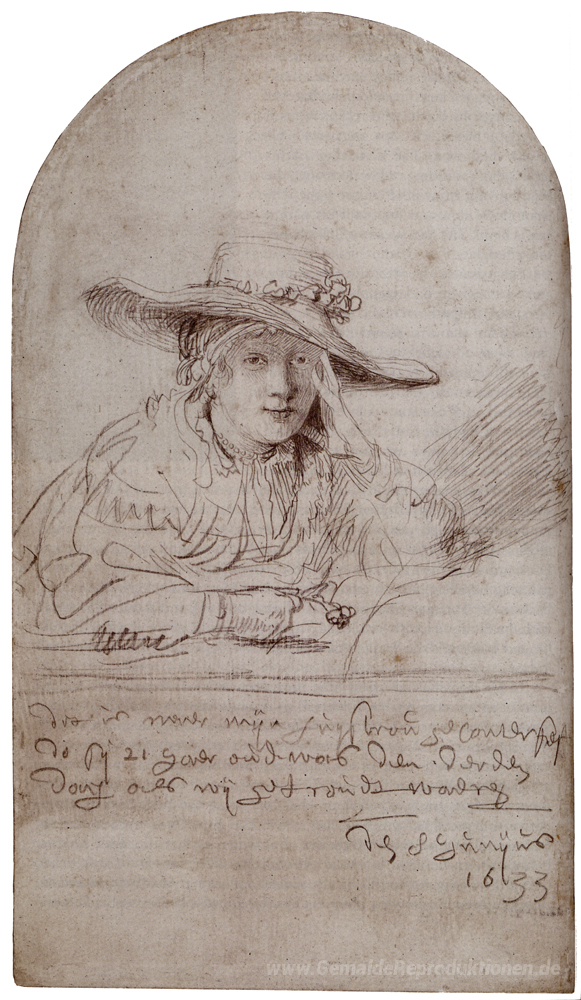 dit is naer mijn huysvrou geconterfeyt
do sy 21 jaer oud was den derden
dach als wij getroudt waeren
den 8 junijus
1633
www.GemaldeReproduktionen.de